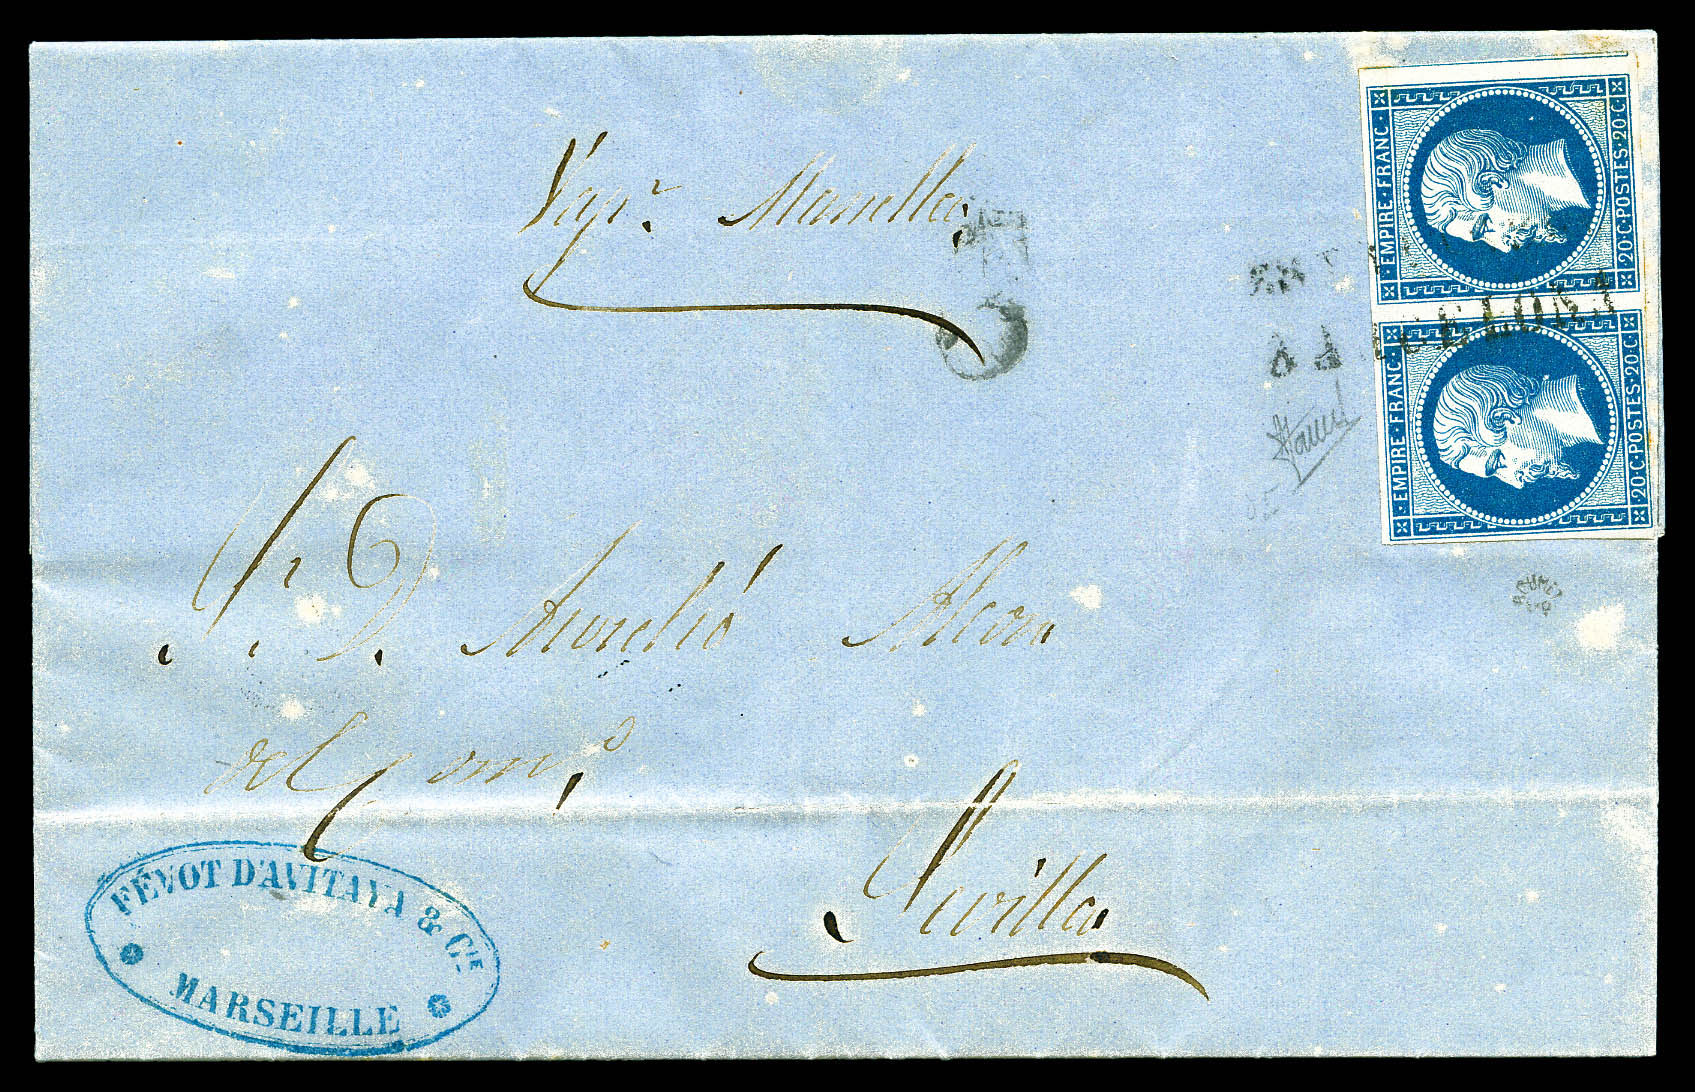 Vapr. Manilla
S. D. Aurelio Alcon
del Como
Sevilla
FÉVOT D'AVITAYA & CIE
MARSEILLE
EMPIRE·FRANC·
20·C·POSTES·20·C·
EMPIRE·FRANC·
20·C·POSTES·20·C·
BARCELONA